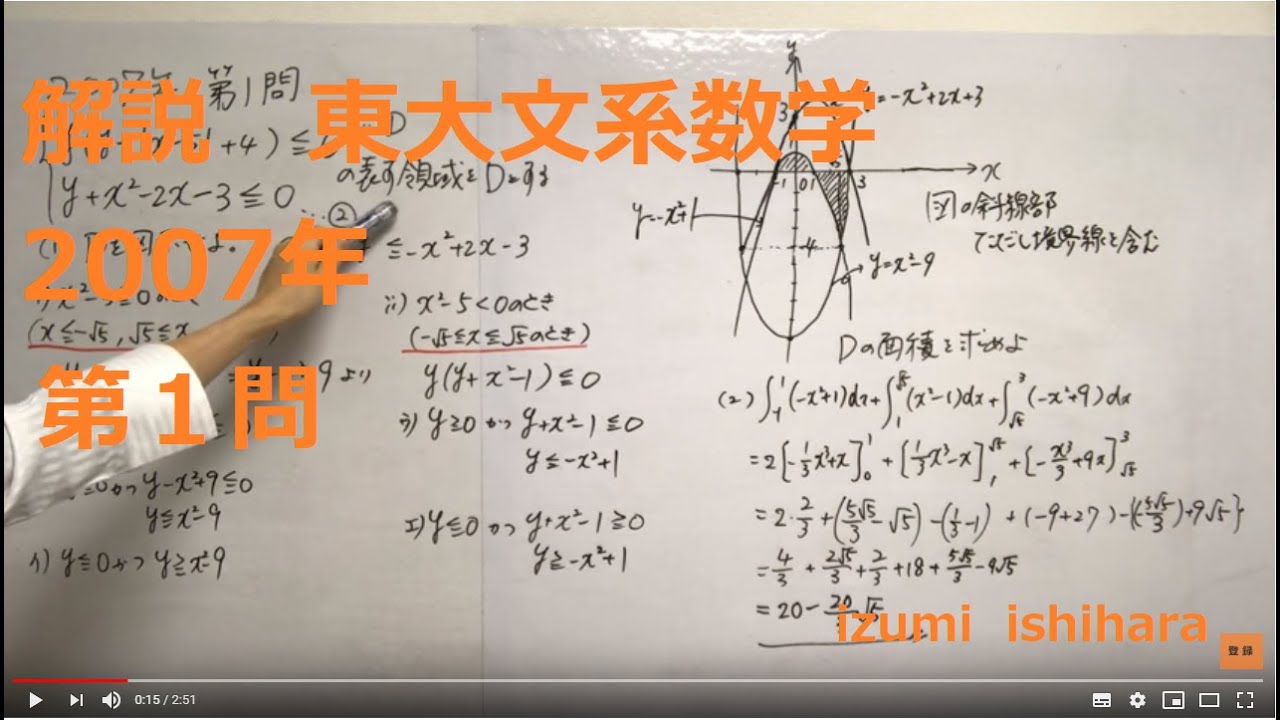 解説 東大文系数学
2007年
第１問
第1問
+4) ≦
y+x²-2x-3≦0
の表す領域をDとする
②
≦-x²+2x-3
(x≦-√5, √5≦x
y-x²+9≦0
y≦x²-9
イ) y≦0かつ y≧x²-9
ii) x²-5<0のとき
(-√5≦x≦√5のとき)
y(y+x²-1)≦0
ウ) y≧0かつ y+x²-1≦0
y≦-x²+1
エ) y≦0かつ y+x²-1≧0
y≧-x²+1
y
=-x²+2x+3
3
x
-1 0 1 3
y=-x²+1
-4
y=x²-9
-9
図の斜線部
ただし境界線を含む
Dの面積を求めよ
(2) ∫₋₁¹(-x²+1)dx+∫₁^√5(x²-1)dx+∫_√5³(-x²+9)dx
=2[-1/3x³+x]₀¹+[1/3x³-x]₁^√5+[-x³/3+9x]_√5³
=2・2/3+(5√5/3-√5)-(1/3-1)+(-9+27)-{(-5√5/3)+9√5}
=4/3+2√5/3+2/3+18+5√5/3-9√5
=20-20/3√5
izumi ishihara
登録
0:15 / 2:51